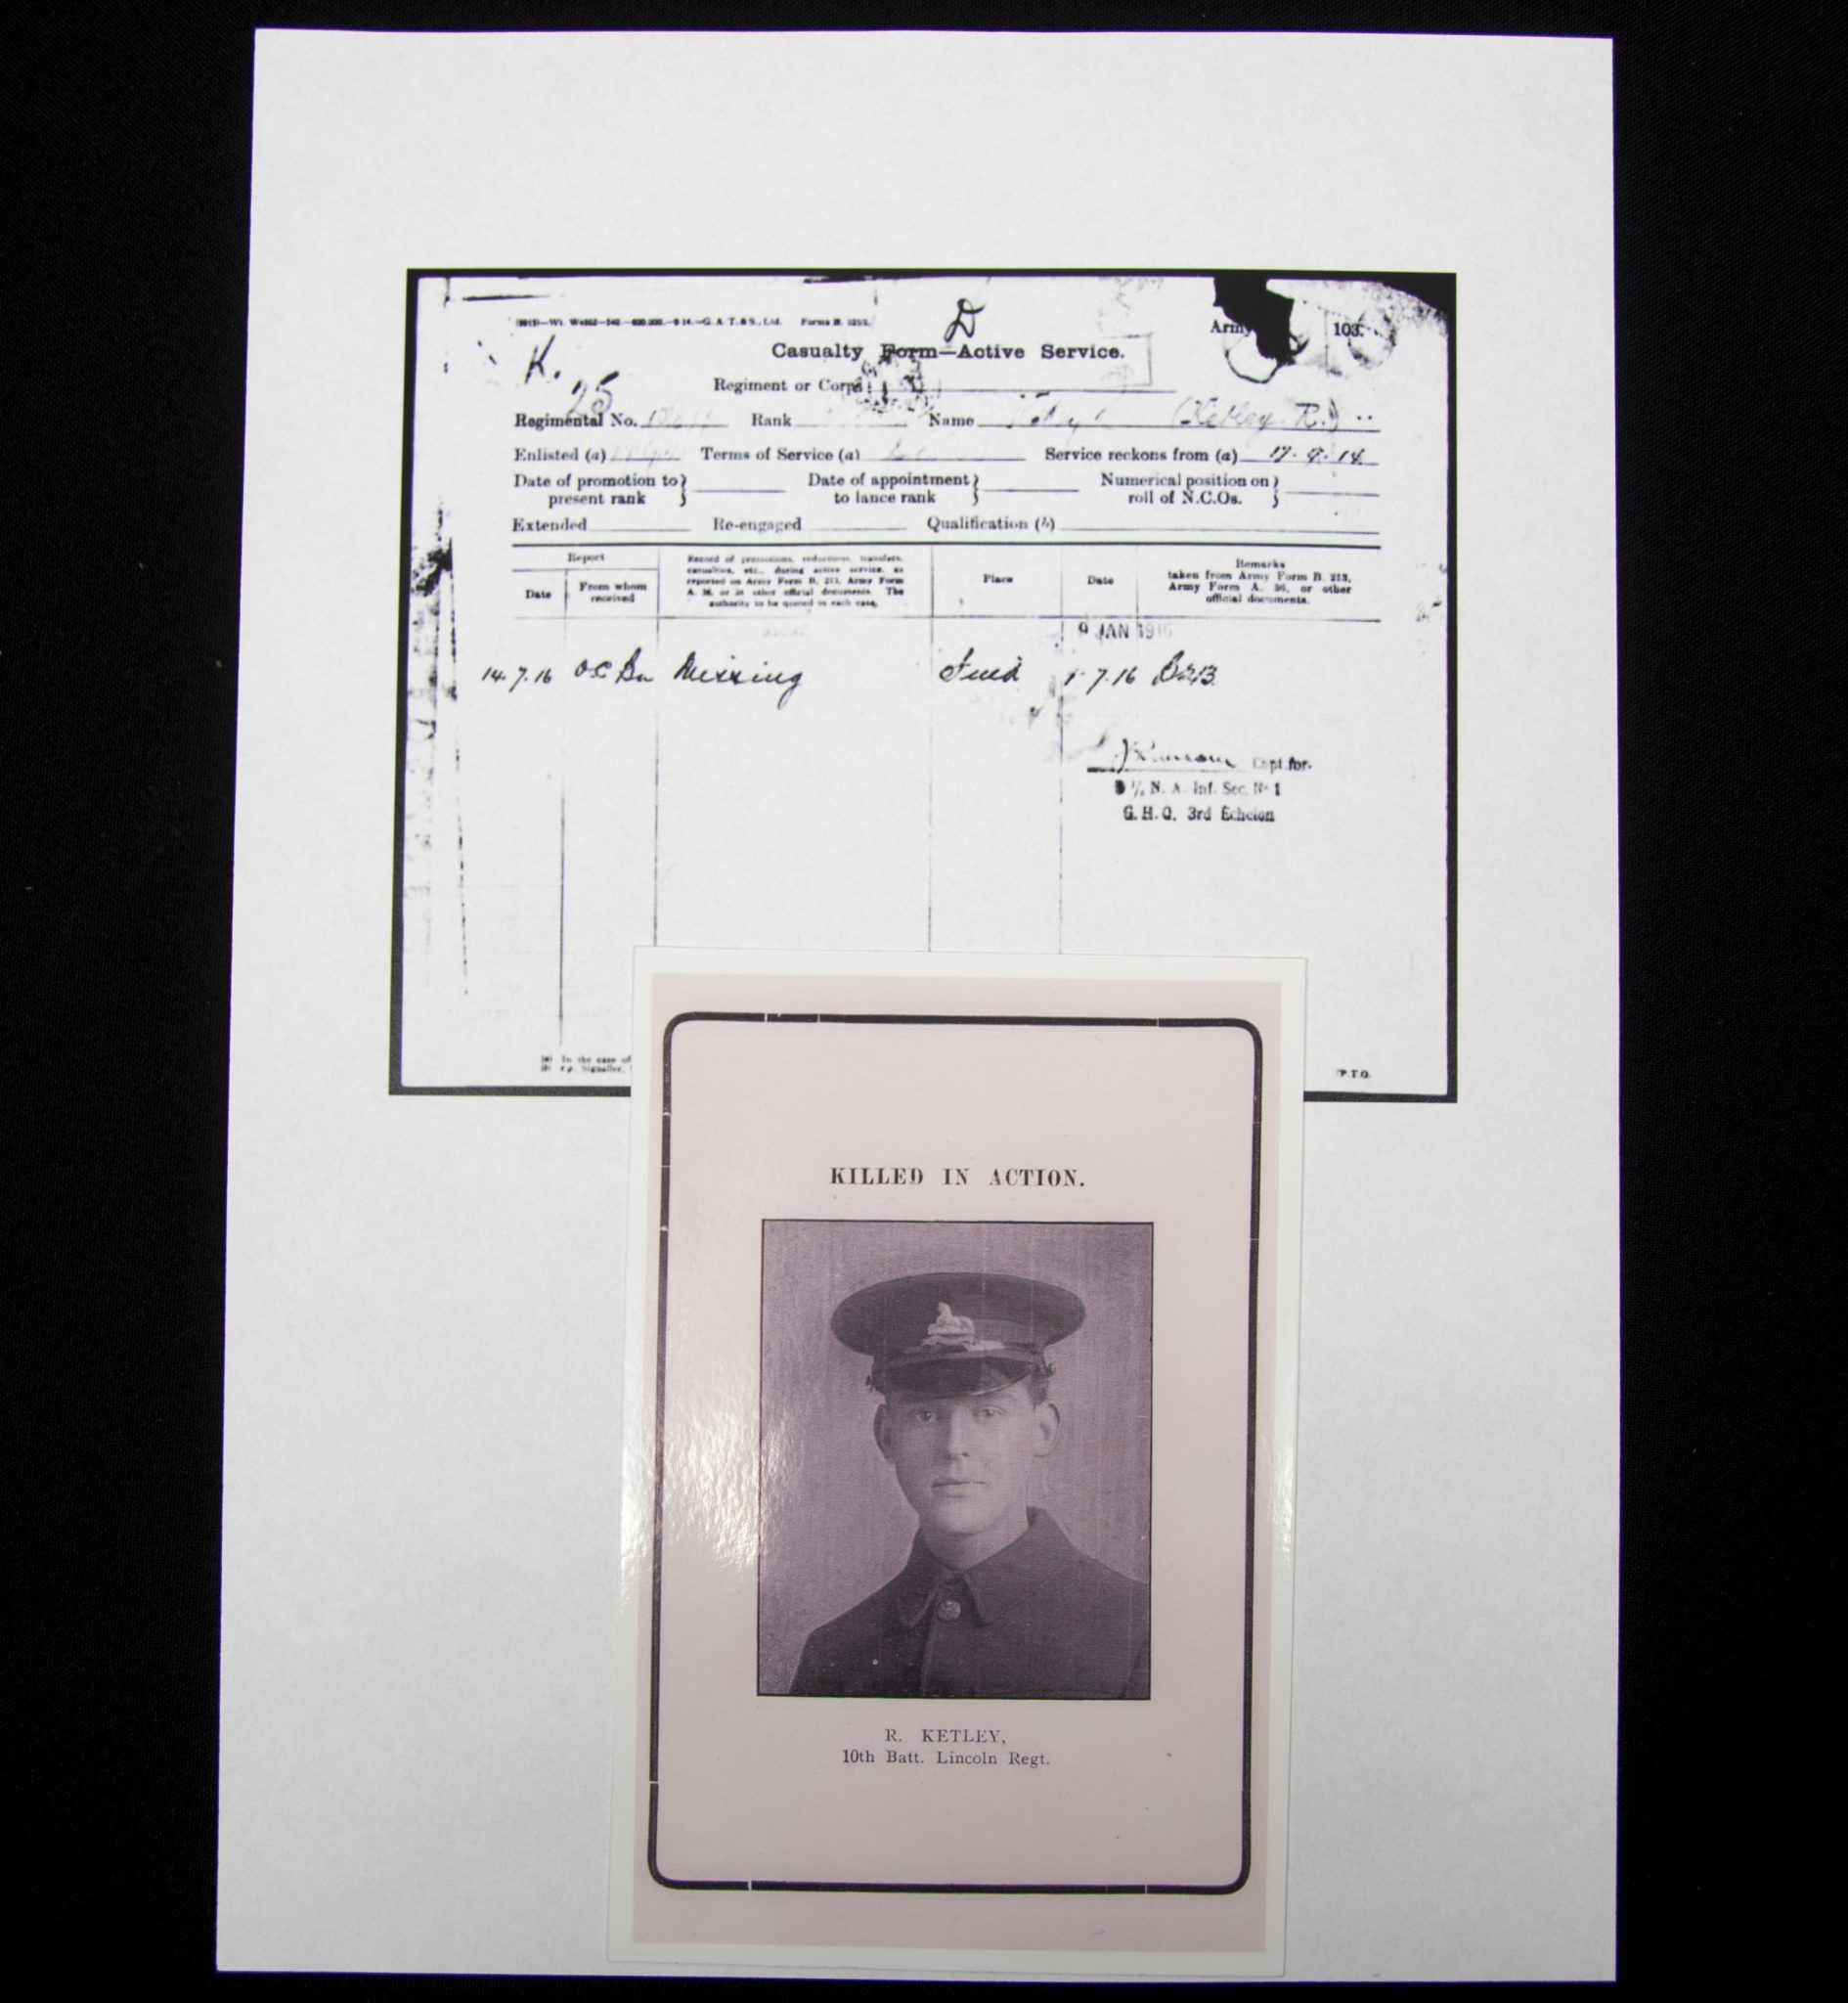 D
Army 103.
Casualty Form—Active Service.
K.
25
Regiment or Corps
Regimental No. Rank Name (Ketley R.)
Enlisted (a) Terms of Service (a) Service reckons from (a) 17.9.14
Date of promotion to present rank } Date of appointment to lance rank } Numerical position on roll of N.C.Os. }
Extended Re-engaged Qualification (b)
Report
Date
From whom received
Record of promotions, reductions, transfers,
casualties, etc., during active service, as
reported on Army Form B. 213, Army Form
A. 36, or in other official documents. The
authority to be quoted in each case.
Place
Date
Remarks
taken from Army Form B. 213,
Army Form A. 36, or other
official documents.
9 JAN 1916
14.7.16 O.C Bn Missing Field 1.7.16 B213
Capt. for
N. A. Inf. Sec. No 1
G.H.Q. 3rd Echelon
(a) In the case of
(b) e.g. Signaller,
P.T.O.
KILLED IN ACTION.
R. KETLEY,
10th Batt. Lincoln Regt.